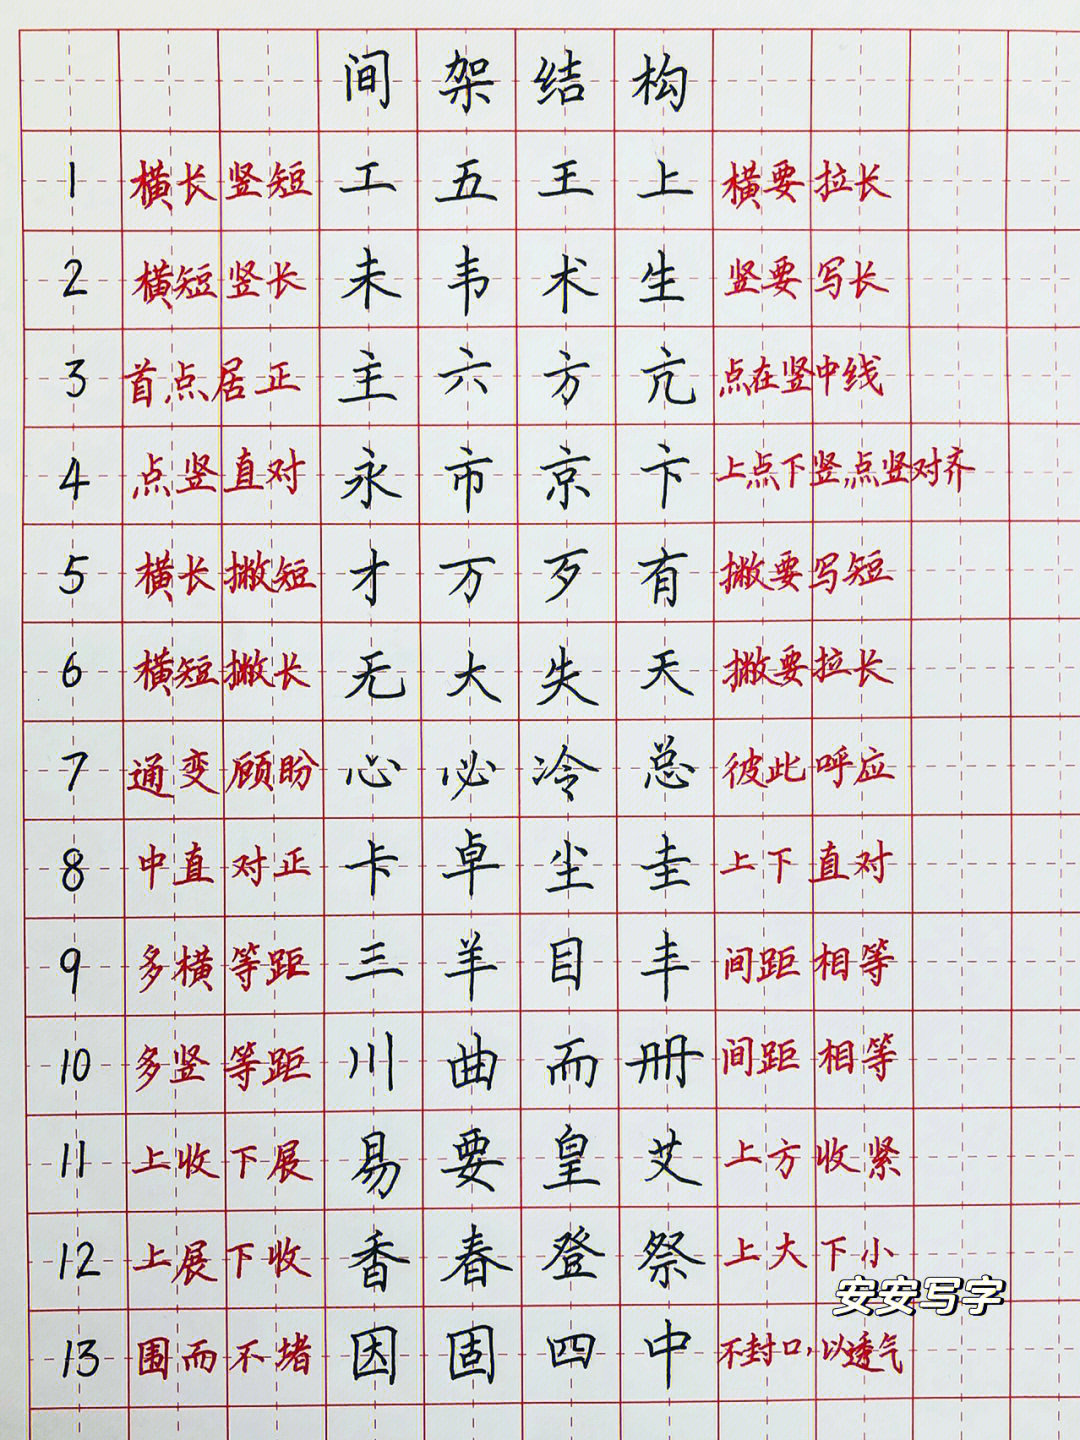 间架结构
1 横长竖短 工 五 王 上 横要拉长
2 横短竖长 未 韦 术 生 竖要写长
3 首点居正 主 六 方 亢 点在竖中线
4 点竖直对 永 市 京 卞 上点下竖,点竖对齐
5 横长撇短 才 万 歹 有 撇要写短
6 横短撇长 无 大 失 天 撇要拉长
7 通变顾盼 心 必 冷 总 彼此呼应
8 中直对正 卡 卓 尘 圭 上下直对
9 多横等距 三 羊 目 丰 间距相等
10 多竖等距 川 曲 而 册 间距相等
11 上收下展 易 要 皇 艾 上方收紧
12 上展下收 香 春 登 祭 上大下小
安安写字
13 围而不堵 因 固 四 中 不封口,以透气